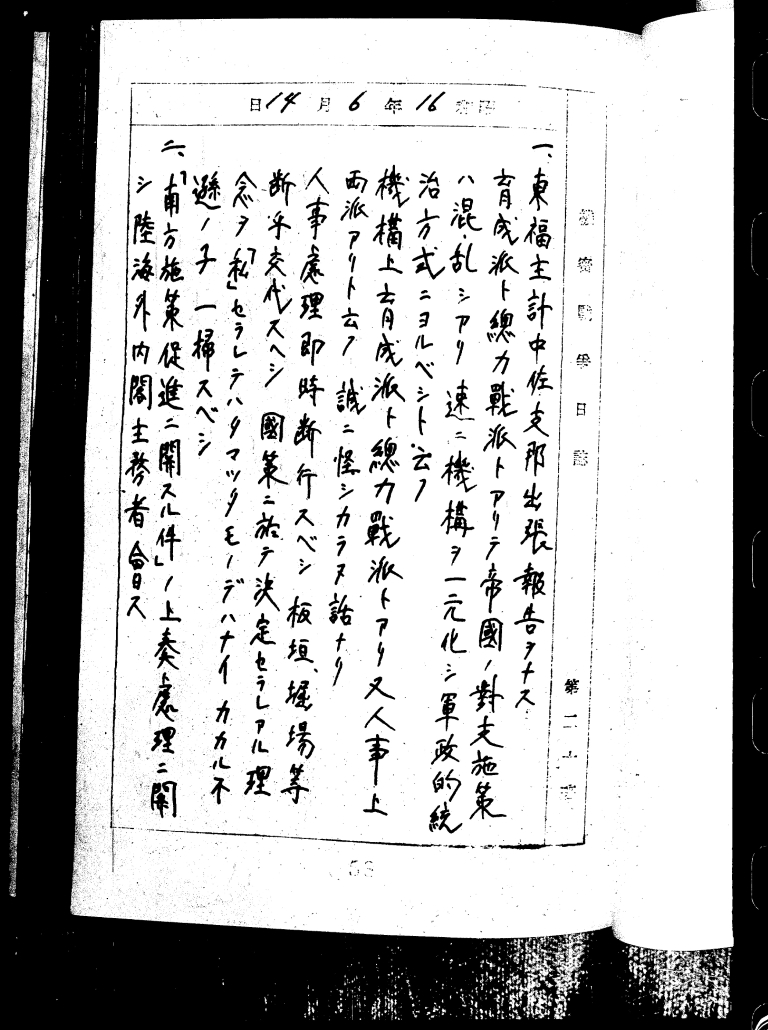 機密戰爭日誌
第二十班
昭和16年6月14日
一、東福主計中佐支那出張報告ヲナス
育成派ト總力戰派トアリテ帝國ノ對支施策
ハ混乱シアリ 速ニ機構ヲ一元化シ軍政的統
治方式ニヨルベシト云フ
機構上育成派ト總力戰派トアリ又人事上
両派アリト云フ 誠ニ怪シカラヌ話ナリ
人事處理即時断行スベシ 板垣、堀場等
断乎交代スヘシ 國策ニ於テ決定セラレアル理
念ヲ「私」セラレテハタマツタモノデハナイ カカル不
遜ノ子一掃スベシ
二、「南方施策促進ニ関スル件」ノ上奏處理ニ関
シ陸海外内閣主務者會ス
58